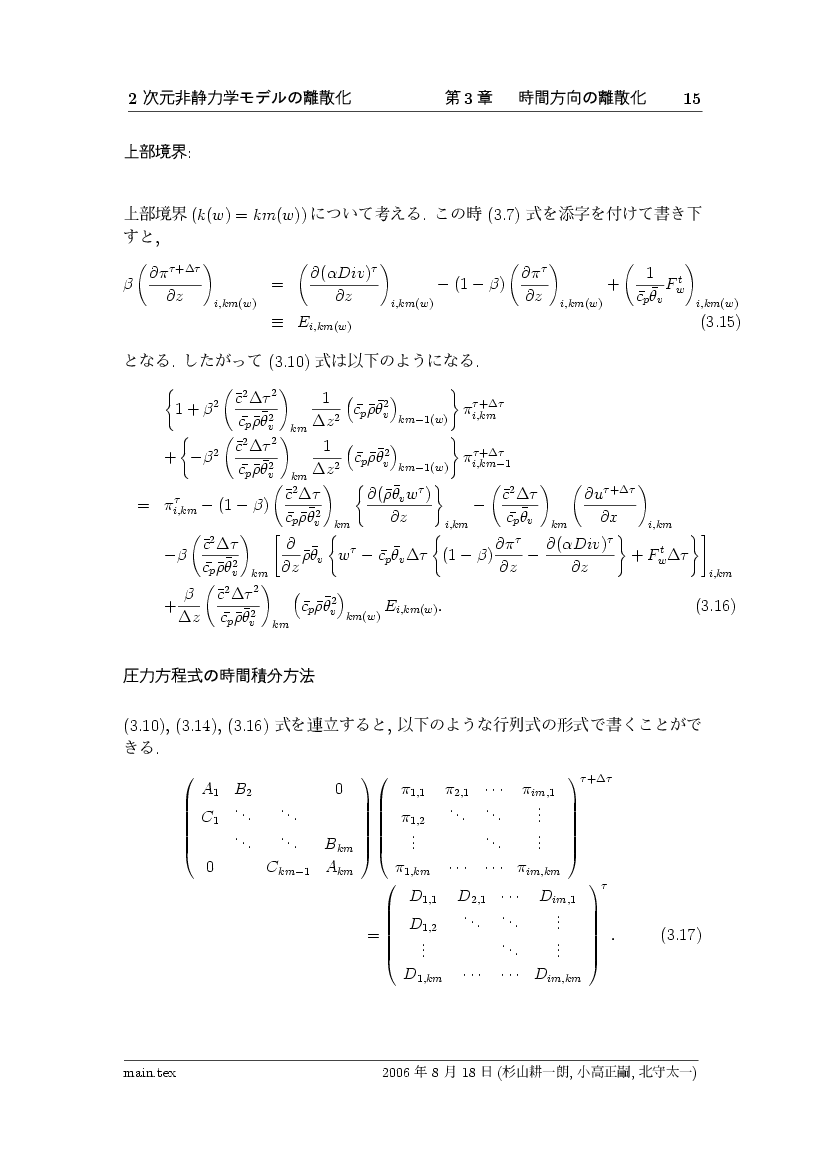 2 次元非静力学モデルの離散化 第 3 章 時間方向の離散化 15
上部境界:
上部境界 (k(w) = km(w)) について考える. この時 (3.7) 式を添字を付けて書き下
すと,
β(∂π^{τ+Δτ}/∂z)_{i,km(w)} = (∂(αDiv)^τ/∂z)_{i,km(w)} − (1 − β)(∂π^τ/∂z)_{i,km(w)} + (1/(c̄_p θ̄_v) F_w^t)_{i,km(w)}
≡ E_{i,km(w)} (3.15)
となる. したがって (3.10) 式は以下のようになる.
{1 + β²(c̄²Δτ²/(c̄_p ρ̄ θ̄_v²))_{km} 1/Δz² (c̄_p ρ̄ θ̄_v²)_{km−1(w)}} π_{i,km}^{τ+Δτ}
+ {−β²(c̄²Δτ²/(c̄_p ρ̄ θ̄_v²))_{km} 1/Δz² (c̄_p ρ̄ θ̄_v²)_{km−1(w)}} π_{i,km−1}^{τ+Δτ}
= π_{i,km}^τ − (1 − β)(c̄²Δτ/(c̄_p ρ̄ θ̄_v²))_{km} {∂(ρ̄ θ̄_v w^τ)/∂z}_{i,km} − (c̄²Δτ/(c̄_p θ̄_v))_{km} (∂u^{τ+Δτ}/∂x)_{i,km}
−β(c̄²Δτ/(c̄_p ρ̄ θ̄_v²))_{km} [∂/∂z ρ̄ θ̄_v {w^τ − c̄_p θ̄_v Δτ {(1 − β) ∂π^τ/∂z − ∂(αDiv)^τ/∂z} + F_w^t Δτ}]_{i,km}
+β/Δz (c̄²Δτ²/(c̄_p ρ̄ θ̄_v²))_{km} (c̄_p ρ̄ θ̄_v²)_{km(w)} E_{i,km(w)}. (3.16)
圧力方程式の時間積分方法
(3.10), (3.14), (3.16) 式を連立すると, 以下のような行列式の形式で書くことがで
きる.
( A_1 B_2 0 ) ( π_{1,1} π_{2,1} ⋯ π_{im,1} )^{τ+Δτ}
( C_1 ⋱ ⋱ ) ( π_{1,2} ⋱ ⋱ ⋮ )
( ⋱ ⋱ B_{km} ) ( ⋮ ⋱ ⋮ )
( 0 C_{km−1} A_{km} ) ( π_{1,km} ⋯ ⋯ π_{im,km} )
( D_{1,1} D_{2,1} ⋯ D_{im,1} )^τ
( D_{1,2} ⋱ ⋱ ⋮ )
= ( ⋮ ⋱ ⋮ ) . (3.17)
( D_{1,km} ⋯ ⋯ D_{im,km} )
main.tex 2006 年 8 月 18 日 (杉山耕一朗, 小高正嗣, 北守太一)